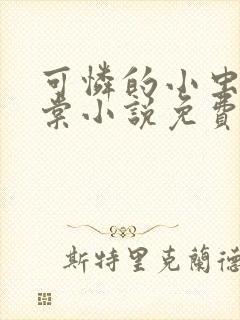 可憐的小虫
棠小說免費
斯特里克蘭德